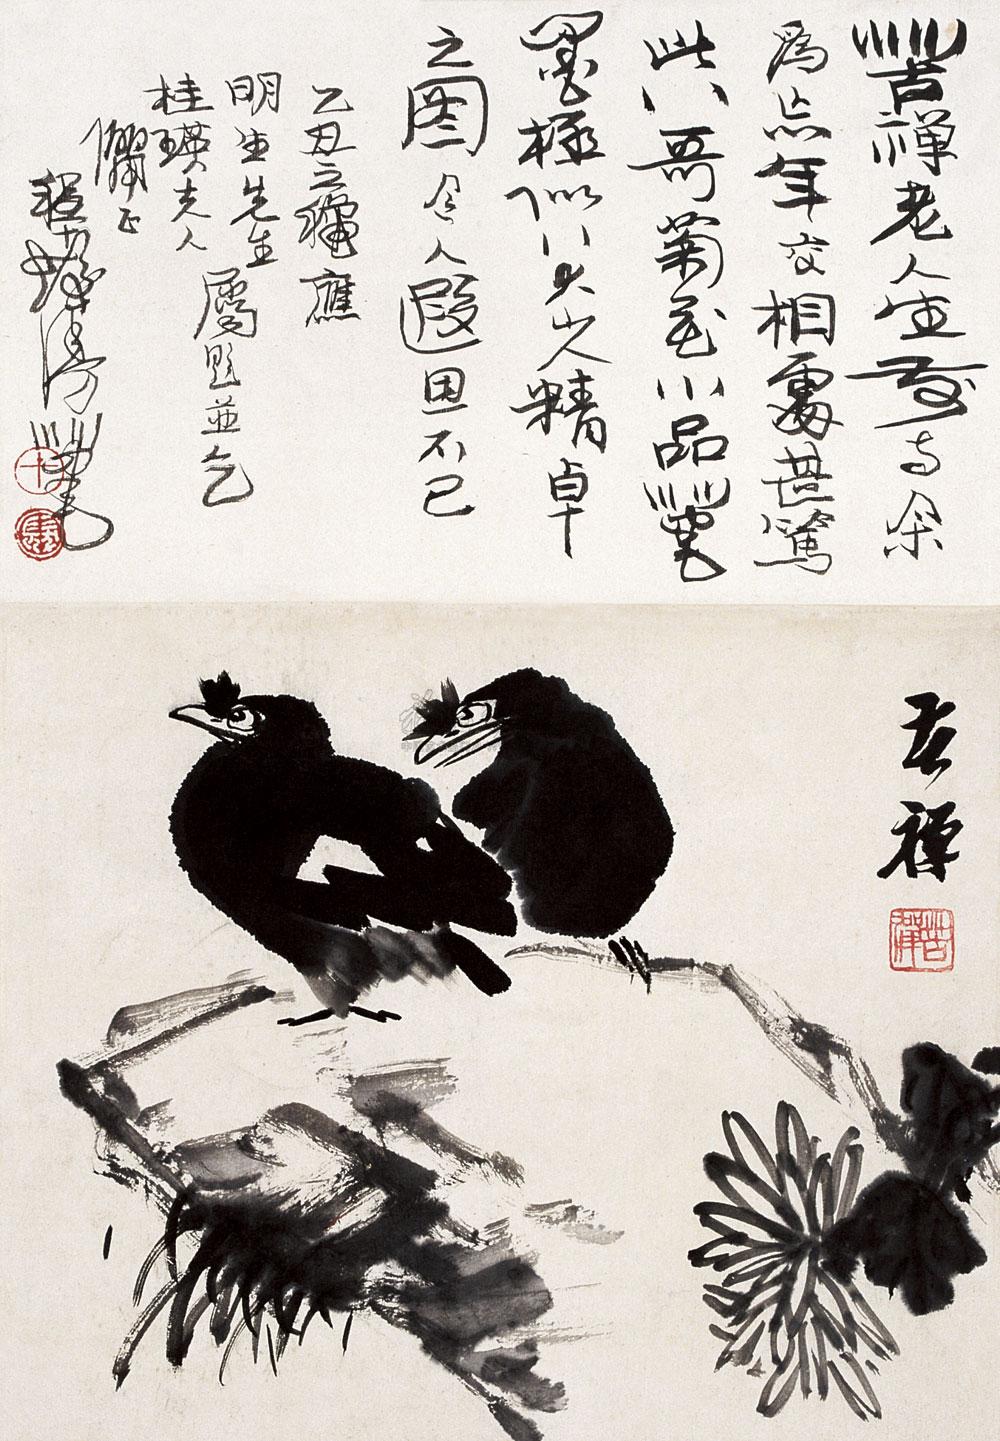 苦禪老人生前与余
爲忘年交相處甚篤
此八哥菊花小品筆
墨極似八大山人精卓
之圖令人遐思不已
乙丑之穐應
明生先生
桂瑛夫人
屬題並乞
儷正
程十髮
苦禪